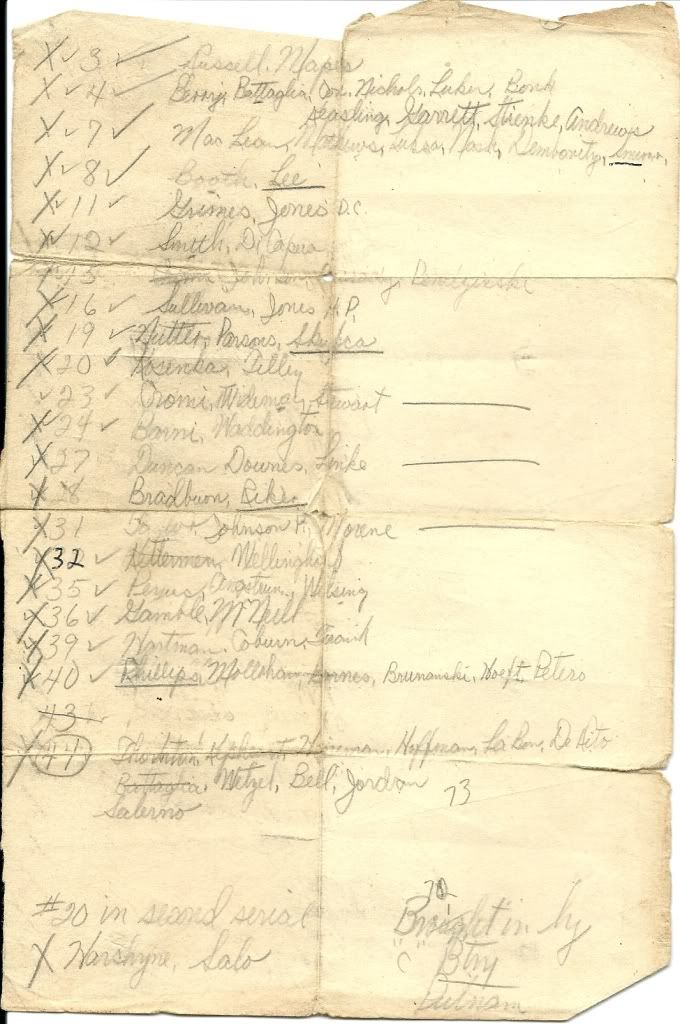 X ✓ 3 ✓ Russell, Mapes
X ✓ 4 ✓ Berry, Battaglia, Nichols, Luker, Bond
Seasling, Garrett, Stienke, Andrews
X ✓ 7 ✓ Mac Lean, Mathews, Nash, Dembovitz,
X ✓ 8 ✓ Booth, Lee
X ✓ 11 ✓ Grimes, Jones D.C.
X ✓ 12 ✓ Smith, Di Capua
15 Johnson,
X 16 ✓ Sullivan, Jones H.P.
X 19 ✓ Nutter, Parsons, Skubca
X 20 ✓ Kosenka, Tilley
✓ 23 ✓ Oromi, Wideman, Stewart
X 24 ✓ Barni, Waddington
X 27 Duncan Downes, Linke
X 28 Bradburn, Riker
X 31 Johnson H., Morene
X 32 ✓ Kitterman, Wellinghoff
X 35 ✓ Angstrum,
X 36 ✓ Gamble, McNeill
X 39 ✓ Hartman, Coburn, Frank
X 40 ✓ Phillips, Molloham, Barnes, Brunanski, Hoeft, Peters
43
X 44 Thornton, Heineman, Hoffman, La Bon, De Pito
Battaglia, Wetzel, Bell, Jordon 73
Salerno
#20 in second serial
X Harshyne, Salo
70
Brought in by
"C" Btry
Putnam